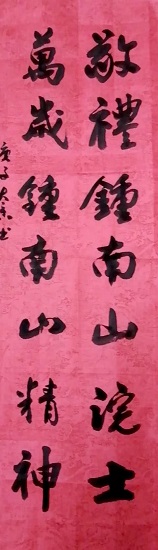 敬禮鍾南山院士
萬歲鍾南山精神
庚子